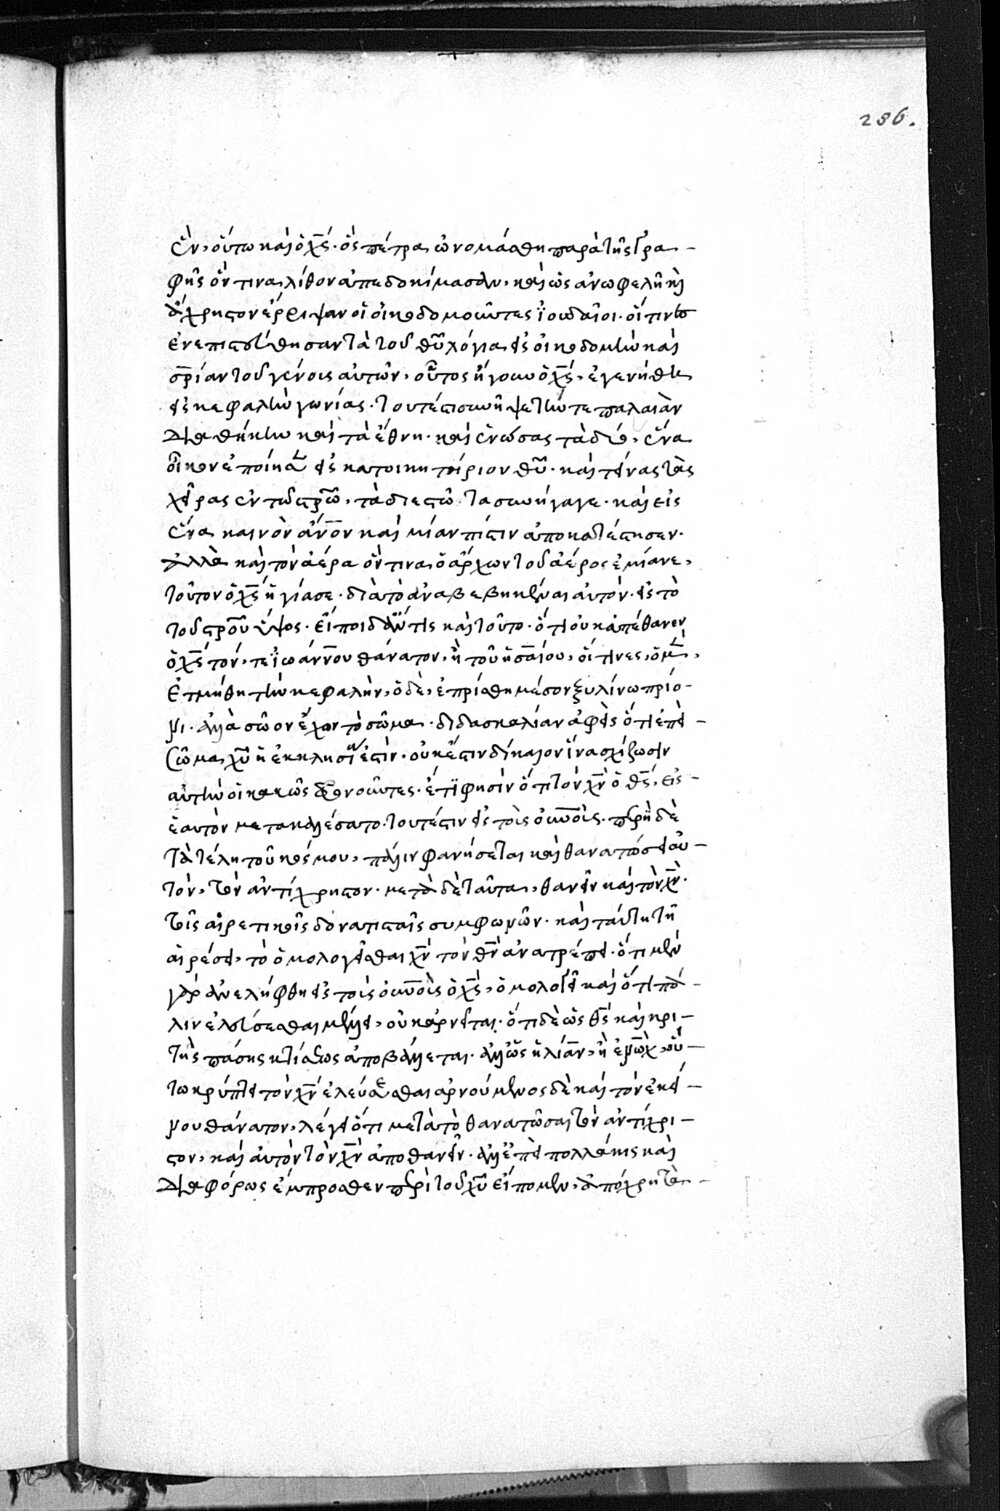 286.
ἓν, οὕτω καὶ ὁ χ̅ς̅. ὃς πέτρα ὠνομάσθη παρὰ τῆς γρα-
φῆς ὅν τινα λίθον ἀπεδοκίμασαν, καὶ ὡς ἀνωφελῆ καὶ
ἄχρηστον ἔρριψαν οἱ οἰκοδομοῦντες ἰουδαῖοι. οἵ τινες
ἐνεπιστεύθησαν τὰ τοῦ θ̅υ̅ λόγια εἰς οἰκοδομὴν καὶ
σ̅ρ̅ίαν τοῦ γένους αὐτῶν, οὗτος ἤγουν ὁ χ̅ς̅, ἐγενήθη
εἰς κεφαλὴν γωνίας. τουτέστι συνῆψε τήν τε παλαιὰν
διαθήκην καὶ τὰ ἔθνη. καὶ ἑνώσας τὰ δύο, ἕνα
οἶκον ἐποίησεν εἰς κατοικητήριον θ̅υ̅. καὶ τείνας τὰς
χεῖρας ἐν τῷ σ̅ρ̅ῶ̅, τὰ διεστῶτα συνήγαγε. καὶ εἰς
ἕνα καινὸν ἄν̅ο̅ν καὶ μίαν πίστιν ἀποκατέστησεν.
ἀλλὰ καὶ τὸν ἀέρα ὅν τινα ὁ ἄρχων τοῦ ἀέρος ἐμίανε,
τοῦτον ὁ χ̅ς̅ ἡγίασε. διὰ τὸ ἀναβεβηκέναι αὐτὸν εἰς τὸ
τοῦ σ̅ρ̅οῦ ὕψος. εἴποι δ' ἄν τις καὶ τοῦτο. ὅτι οὐκ ἀπέθανεν
ὁ χ̅ς̅ τόν, τε ἰωάννου θάνατον, ἢ τοῦ ἡσαΐου, οἵ τινες, ὁ μὲν,
ἐτμήθη τὴν κεφαλὴν, ὁ δὲ, ἐπρίσθη μέσον ξυλίνω πρίο-
νι. ἀλλὰ σῶον ἔχον τὸ σῶμα. διδασκαλίαν ἀφεὶς ὅτι ἐπεὶ
σῶμα χ̅υ̅ ἡ ἐκκλησία ἐστὶν. οὐκ ἔστιν δίκαιον ἵνα σχίζωσιν
αὐτὴν οἱ κακῶς φρονοῦντες. ἔτι φησὶν ὅτι τὸν χ̅ν̅ ὁ θ̅ς̅, εἰς
ἑαυτὸν μετεκαλέσατο. τουτέστιν εἰς τοὺς ο̅υ̅ν̅ο̅ὺς. περὶ δὲ
τὰ τέλη τοῦ κόσμου, πάλιν φανήσεται καὶ θανατώσει αὐ-
τὸν, τὸν ἀντίχρηστον. μετὰ δὲ ταῦτα, θανεῖν καὶ τὸν χ̅ν̅.
τοῖς αἱρετικοῖς δονατισταῖς συμφωνῶν. καὶ ταύτη τῆ
αἱρέσει, τὸ ὁμολογεῖσθαι χ̅ν̅ τὸν θ̅ν̅ ἀνατρέπει. ὅτι μὲν
γὰρ ἀνελήφθη εἰς τοὺς ο̅υ̅ν̅ο̅ὺς ὁ χ̅ς̅, ὁμολογεῖ καὶ ὅτι πά-
λιν ἐλεύσεσθαι μέλλει, οὐκ ἀρνεῖται. ὅτι δὲ ὡς θ̅ς̅ καὶ κρι-
τὴς πάσης κτίσεως ἀποβάλλεται. ἀλλ' ὡς ἡλίαν, ἢ ἐνὼχ, οὕ-
τω κρύπτει τὸν χ̅ν̅ ἐλεύσεσθαι ἀρνούμενος δὲ καὶ τὸν ἐκεί-
νου θάνατον, λέγει ὅτι μετὰ τὸ θανατῶσαι τὸν ἀντίχρι-
στον, καὶ αὐτὸν τὸν χ̅ν̅ ἀποθανεῖν. ἀλλ' ἐπεὶ πολλάκις καὶ
διαφόρως ἔμπροσθεν περὶ τοῦ χ̅υ̅ εἴπομεν, ἀπόχρη τὰ-